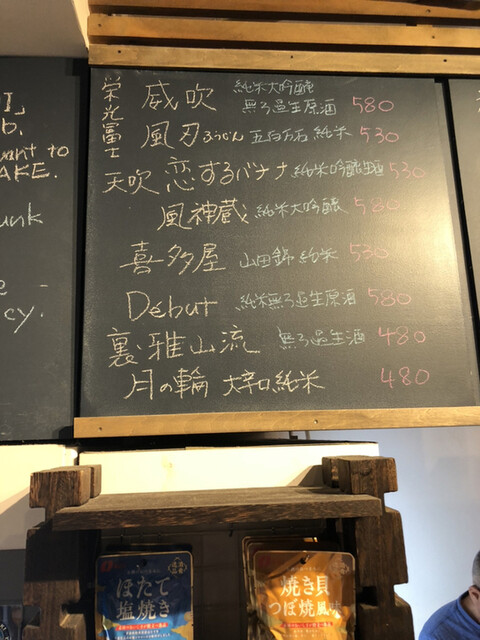 栄光冨士 威吹 純米大吟醸
無ろ過生原酒 580
風刃 ふうじん 五百万石 純米 530
天吹 恋するバナナ 純米吟醸生酒 530
風神蔵 純米大吟醸 580
喜多屋 山田錦 純米 530
Début 純米無ろ過生原酒 580
裏・雅山流 無ろ過生酒 480
月の輪 大辛口純米 480
want to
AKE.
unk
e -
cy.
ほたて
塩焼き
焼き貝
つぼ焼風味